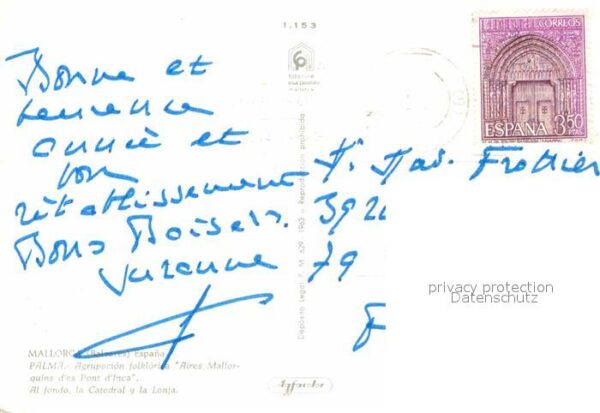 1.153
CORREOS
ESPAÑA 3,50 PTAS
Bonne et
heureuse
année et
bon
rétablissement
Bons Baisers.
Suzanne
M. Mad. Frottier
392
79
F
privacy protection
Datenschutz
Depósito Legal F. M. 629 - 1963 - Reproducción prohibida
MALLORCA (Baleares) España
PALMA.- Agrupación folklórica "Aires Mallor-
quins d'es Pont d'Inca".
Al fondo, la Catedral y la Lonja.